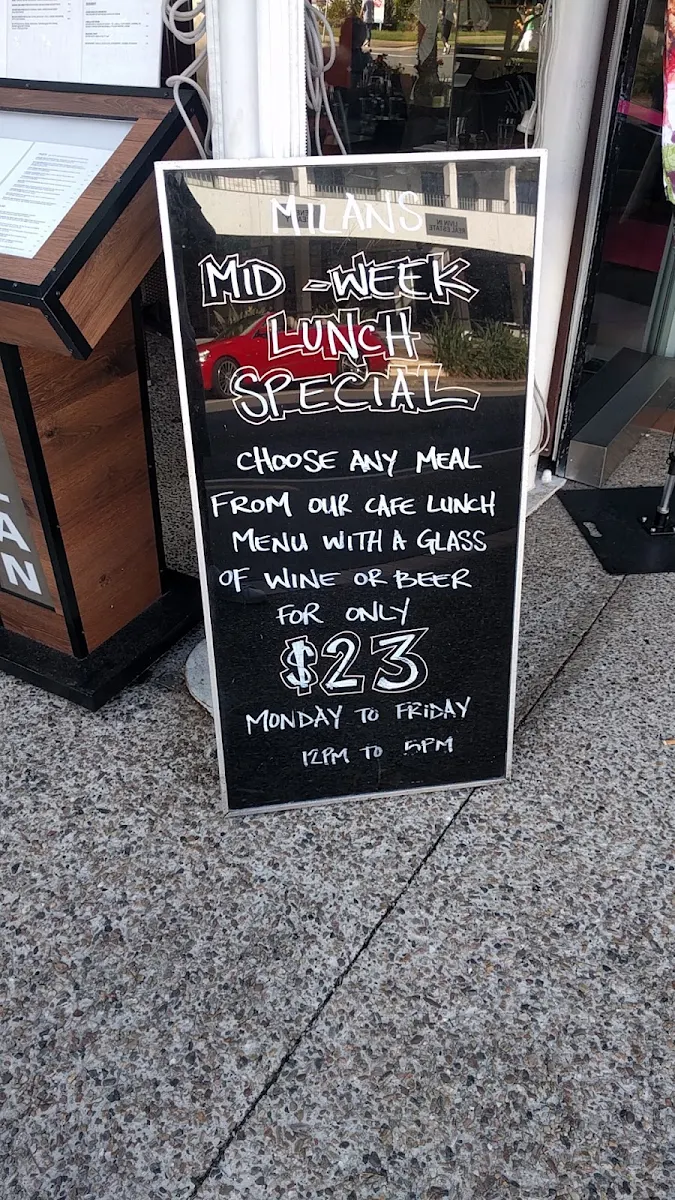 MILANS
MID-WEEK
LUNCH
SPECIAL
CHOOSE ANY MEAL
FROM OUR CAFE LUNCH
MENU WITH A GLASS
OF WINE OR BEER
FOR ONLY
$23
MONDAY TO FRIDAY
12PM TO 5PM
A
N